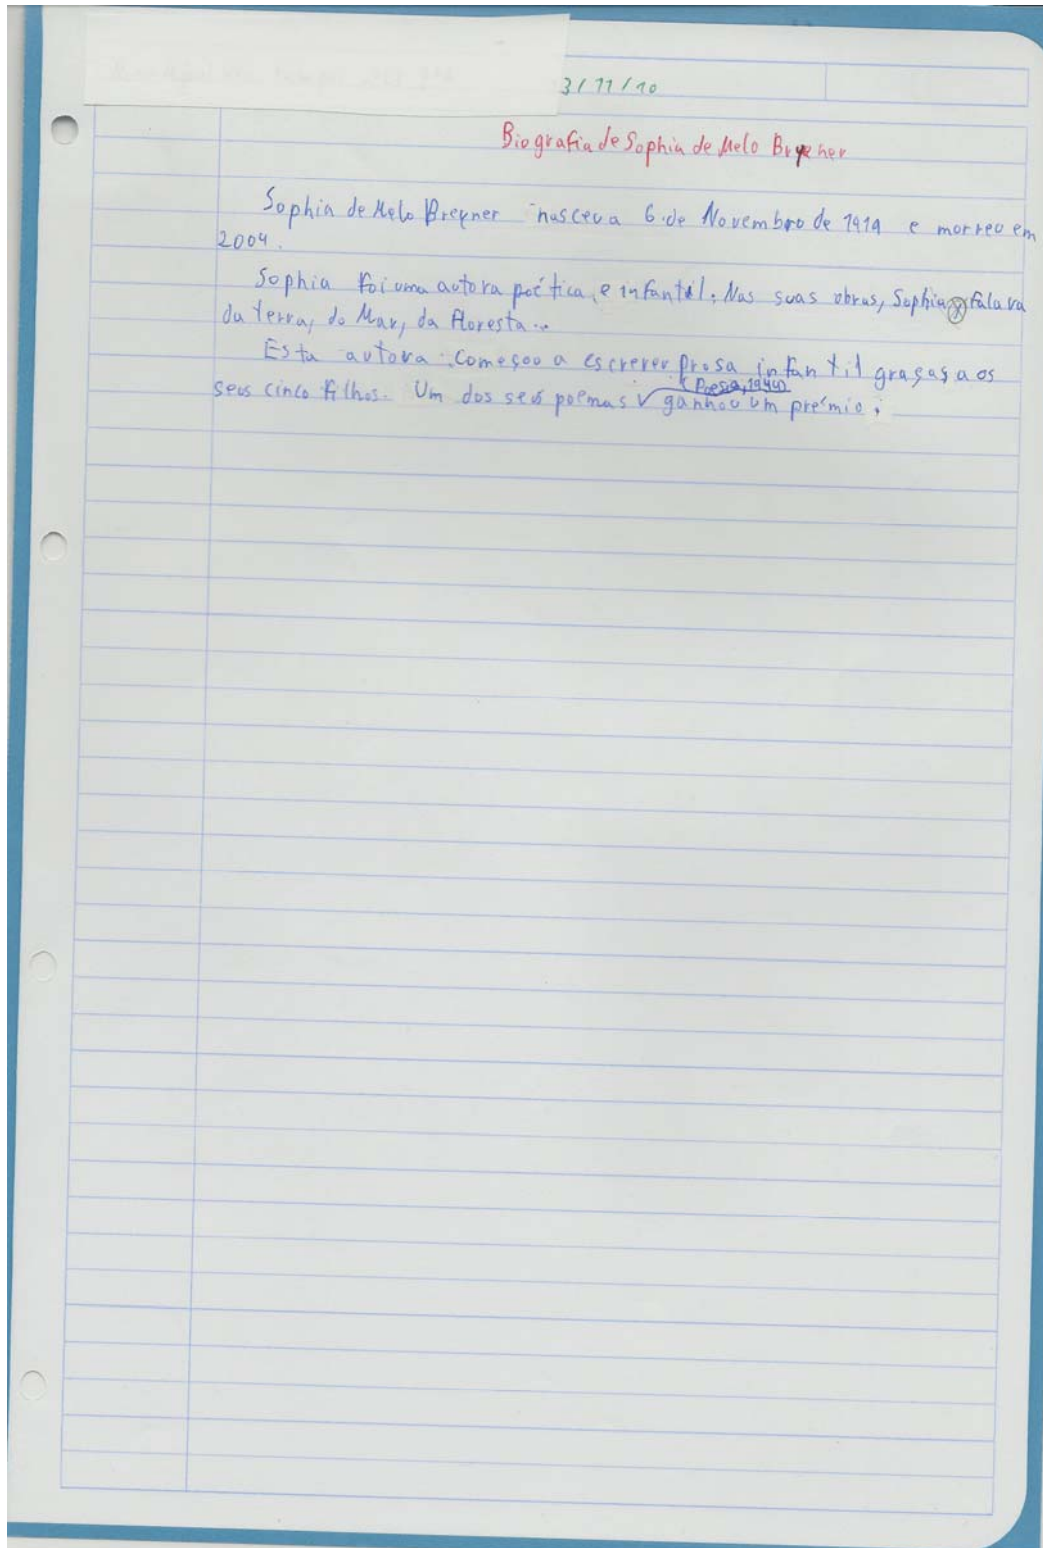 3/11/10
Biografia de Sophia de Melo Breyner
Sophia de Melo Breyner nasceu a 6 de Novembro de 1919 e morreu em
2004.
Sophia foi uma autora poética, e infantil. Nas suas obras, Sophia falava
da terra, do Mar, da floresta...
Esta autora começou a escrever prosa infantil graças aos
seus cinco filhos. Um dos seus poemas (Poesia, 1944) ganhou um prémio.